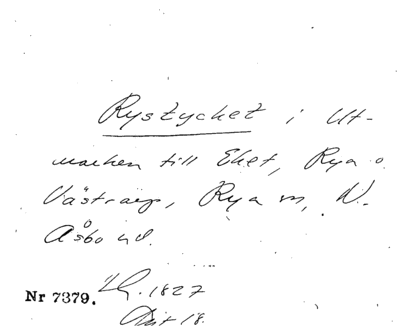 Rystycket i Ut-
marken till Eket, Rya o.
Västraarp, Rya m, N.
Åsbo hd.
Nr 7379. LH. 1827
Akt 18.